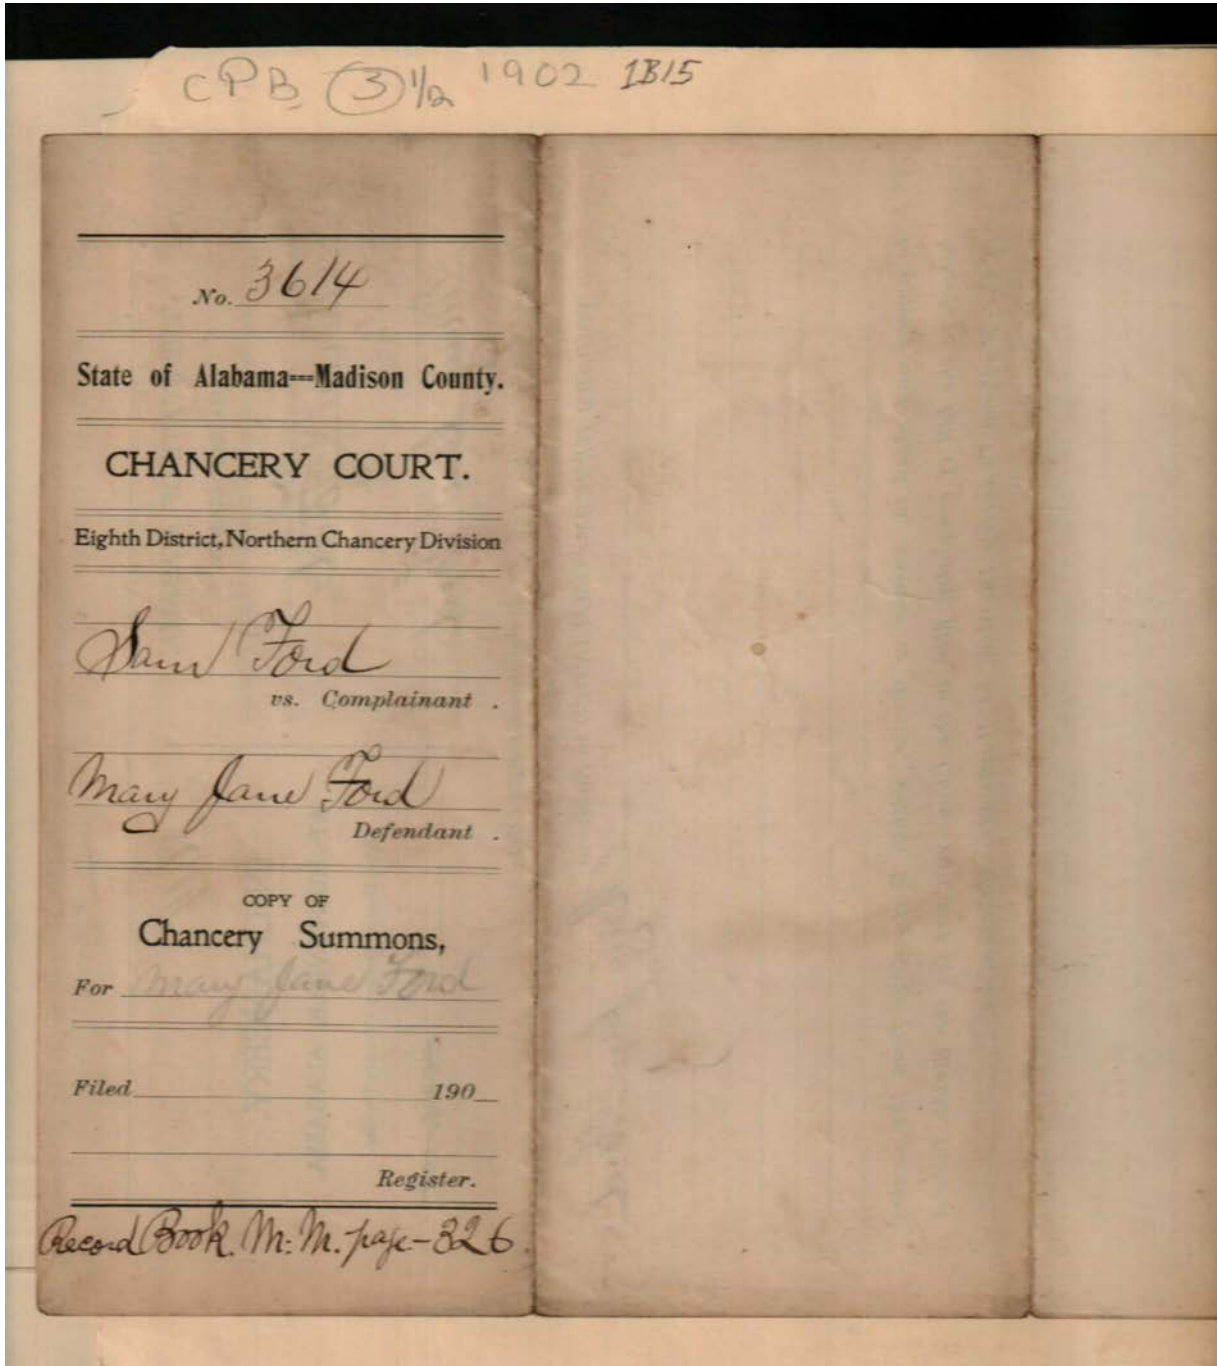 CPB (3) 1/2 1902 1B15
No. 3614
State of Alabama---Madison County.
CHANCERY COURT.
Eighth District, Northern Chancery Division
Sam Ford
vs. Complainant .
Mary Jane Ford
Defendant .
COPY OF
Chancery Summons,
For Mary Jane Ford
Filed 190
Register.
Record Book. M. M. page - 326